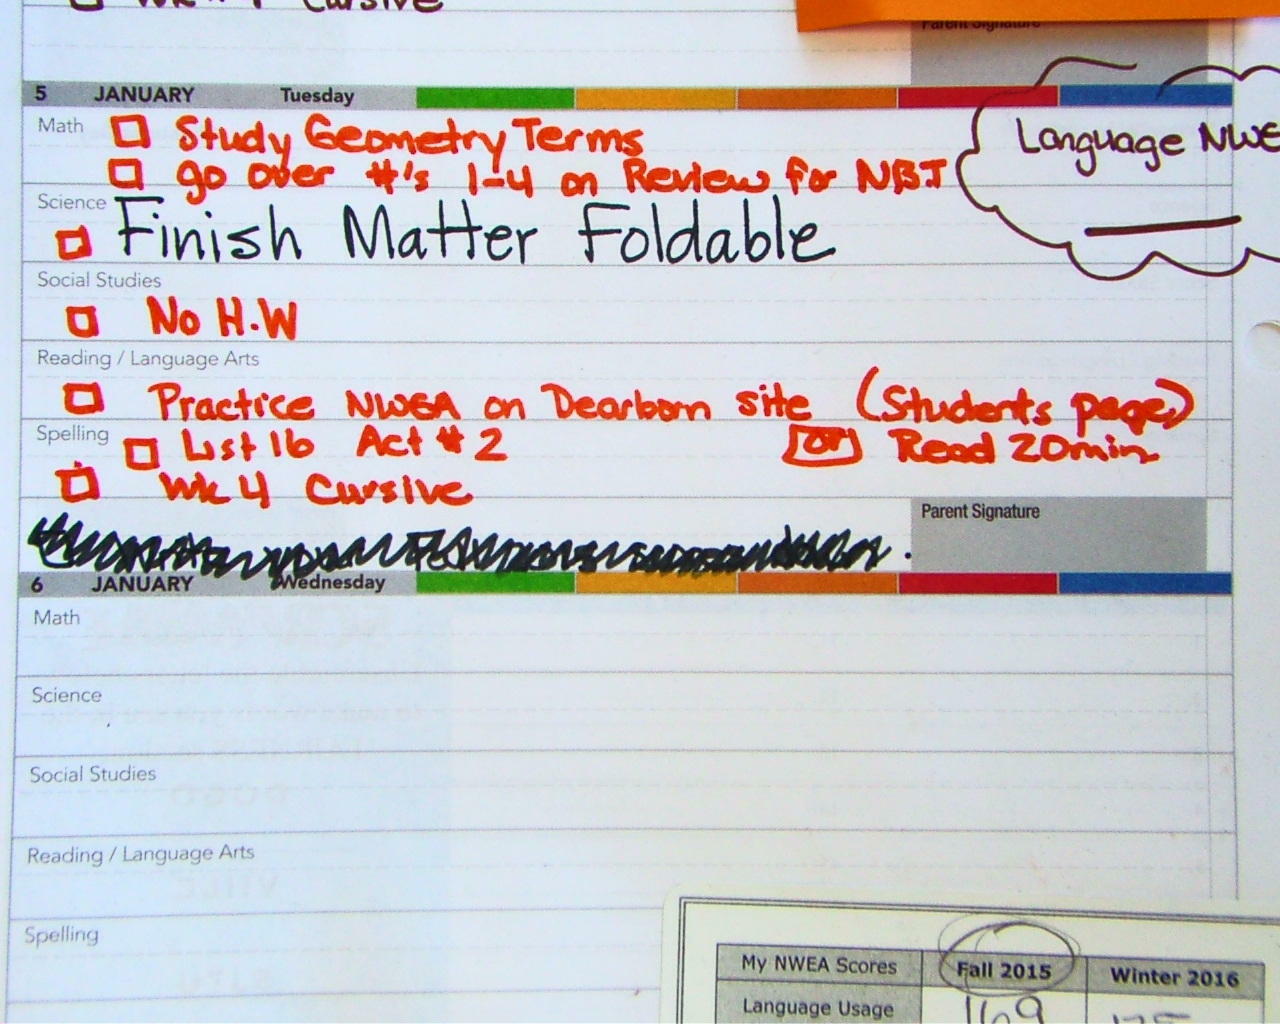 Cursive
Parent Signature
5 JANUARY Tuesday
Math □ Study Geometry Terms
□ go over #'s 1-4 on Review for NBT
Language NWE
Science
□ Finish Matter Foldable
Social Studies
□ No H.W
Reading / Language Arts
□ Practice NWEA on Dearborn site (Students page)
Spelling □ List 16 Act # 2 or Read 20min
□ Wk 4 Cursive
Parent Signature
6 JANUARY Wednesday
Math
Science
Social Studies
Reading / Language Arts
Spelling
My NWEA Scores Fall 2015 Winter 2016
Language Usage 169